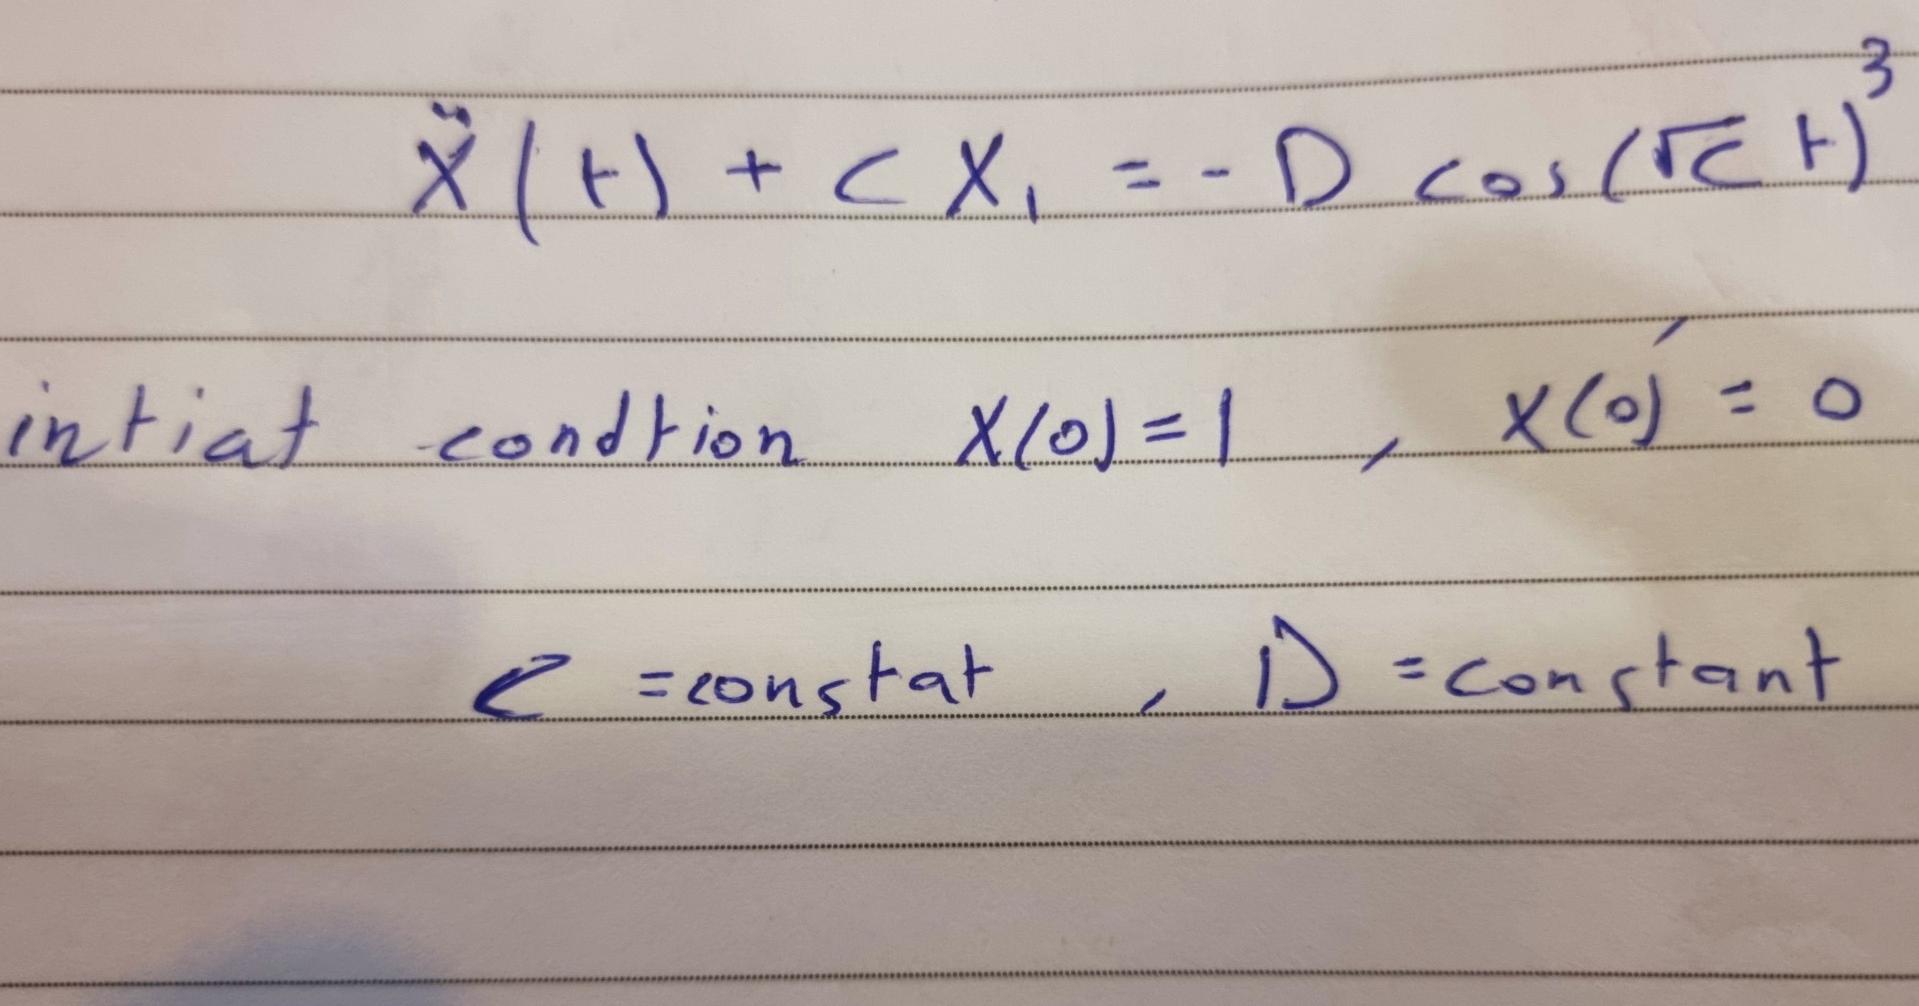 ẍ(t) + C X₁ = - D cos(√C t)³
intiat condtion X(0) = 1 , X(0)′ = 0
C = constat , D = constant